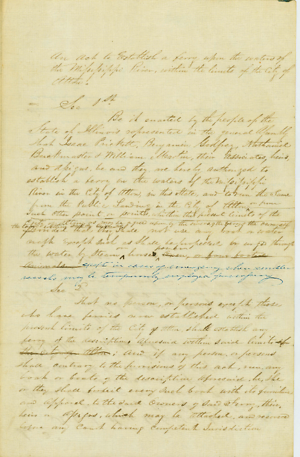 An act to Establish a ferry upon the waters of
the Mississippi River, within the limits of the City of
Alton.
Sec 1st
Be it enacted by the people of the
State of Illinois represented in the general Assembly
that Isaac Prickett, Benjamin Godfrey, Nathaniel
Buckmaster & William Martin, their associates, heirs
and assigns, be and they are hereby authorized to
establish a ferry on the waters of the Mississippi
River in the City of Alton in this State, and to run the same
from the Public Landing in the City of Alton or from
such other point or points within the present limits of the
not use any ferry boat or
water craft except such as shall be propelled or made through
the water by steam or horse
Sec 2
That no person or persons except those
who have ferries now established within the
present limits of the City of Alton shall establish any
ferry of the description aforesaid within said limits
And if any person or persons
shall contrary to the provisions of this act, run any
boat or boats of the description aforesaid, he, she
or they shall forfeit every such boat with its furniture
and apparel, to the said owners of said ferry, their
heirs or assigns, which may be attached, and recovered
before any Court having competent Jurisdiction